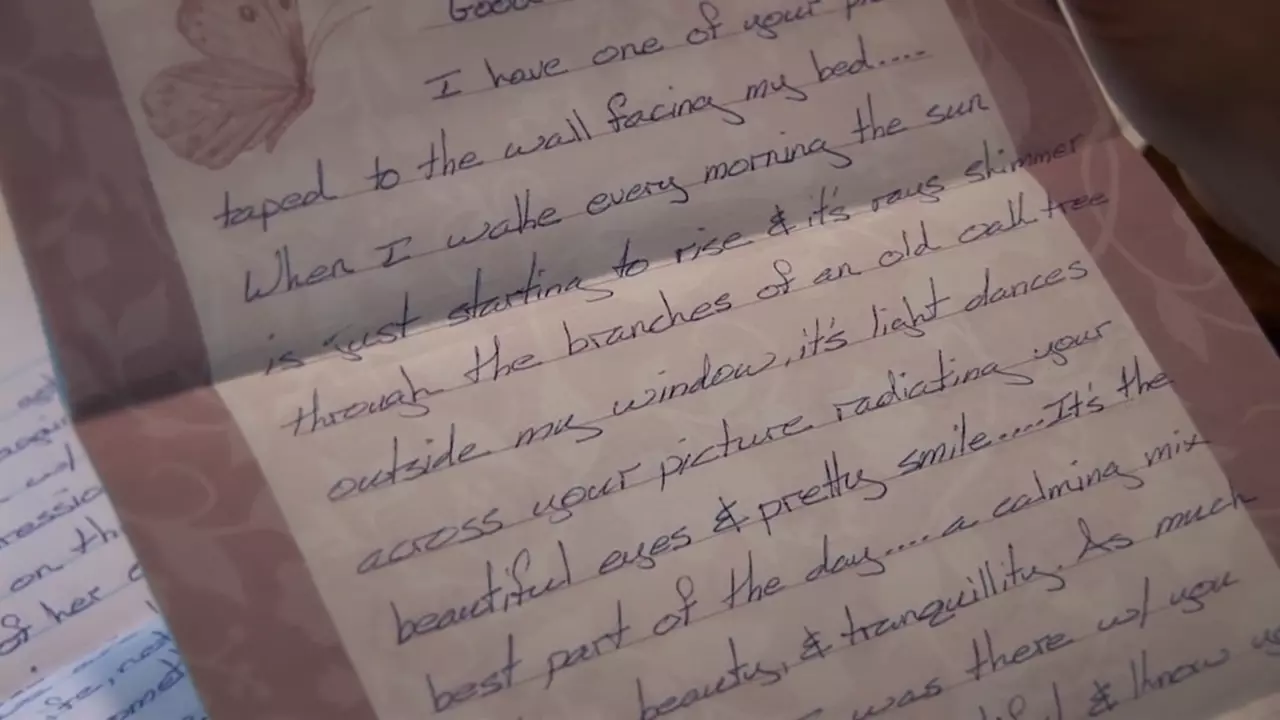 Good
I have one of your
taped to the wall facing my bed....
When I wake every morning the sun
is just starting to rise & it's rays shimmer
through the branches of an old oak tree
outside my window, it's light dances
across your picture radiating your
beautiful eyes & pretty smile.....It's the
best part of the day.... a calming mix
beauty, & tranquillity. As much
I was there w/ you
& know
on th
of her